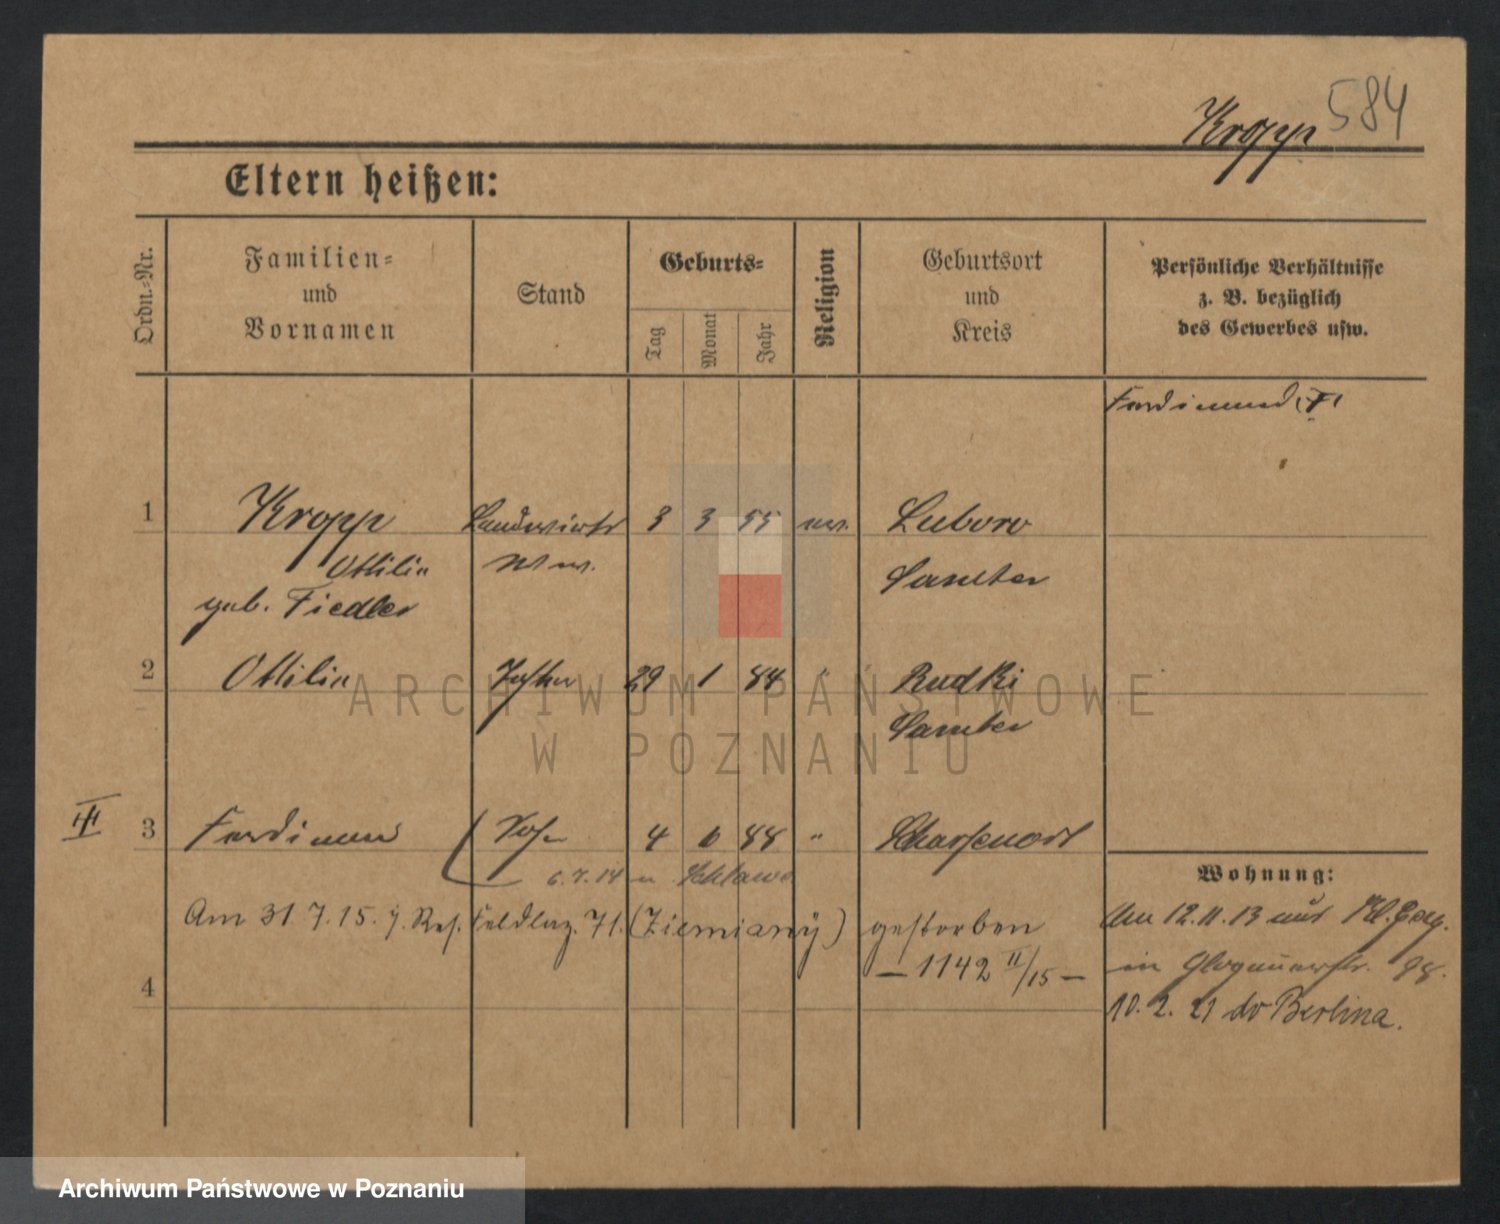 Kropp 584
Eltern heißen:
Ordn.-Nr.
Familien-
und
Vornamen
Stand
Geburts-
Tag
Monat
Jahr
Religion
Geburtsort
und
Kreis
Persönliche Verhältnisse
z. B. bezüglich
des Gewerbes usw.
Ferdinand
1 Kropp Landwirts 3 3 55 ev. Lubowo
Ottilie Ww. Samter
geb. Fiedler
2 Ottilie Tochter 29 1 84 " Rudki
Samter
3 Ferdinand Sohn 4 6 88 " Scharfenort
6.7.14 n. Schlawe
Wohnung:
Am 31 7. 15. i. Res. Feldlaz. 71. (Ziemiany) gestorben
— 1142 II/15 —
4
Am 12.11.13 aus
in Glogauerstr. 98.
10. 2. 21 do Berlina.
ARCHIWUM PAŃSTWOWE
W POZNANIU
Archiwum Państwowe w Poznaniu